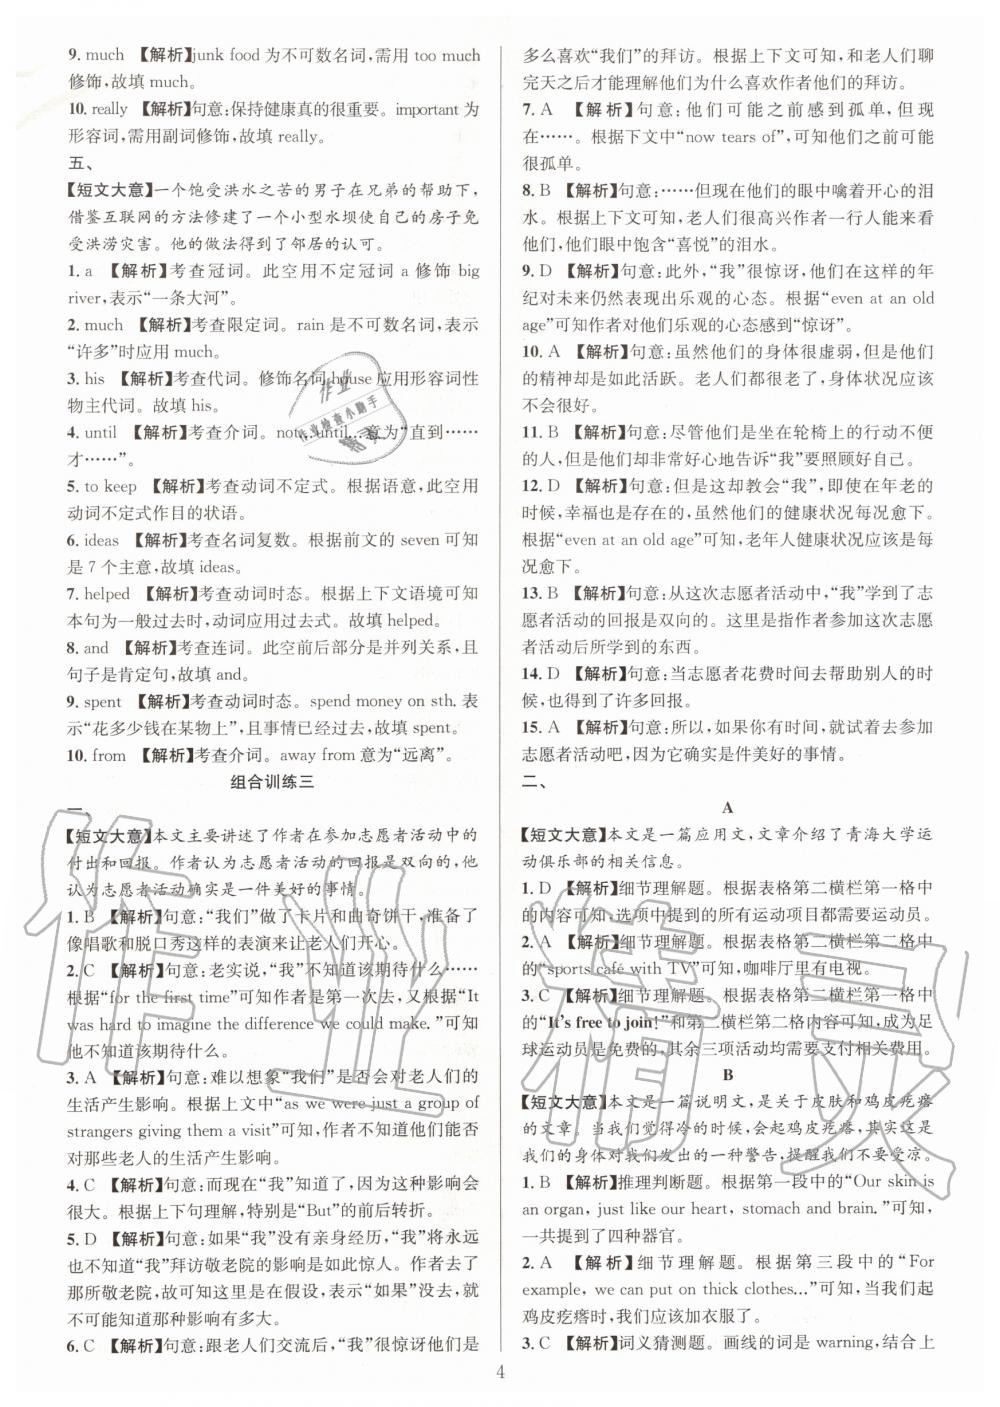 9. much 【解析】junk food 为不可数名词,需用 too much
修饰,故填 much。
10. really 【解析】句意:保持健康真的很重要。important 为
形容词,需用副词修饰,故填 really。
五、
【短文大意】一个饱受洪水之苦的男子在兄弟的帮助下,
借鉴互联网的方法修建了一个小型水坝使自己的房子免
受洪涝灾害。他的做法得到了邻居的认可。
1. a 【解析】考查冠词。此空用不定冠词 a 修饰 big
river,表示“一条大河”。
2. much 【解析】考查限定词。rain 是不可数名词,表示
“许多”时应用 much。
3. his 【解析】考查代词。修饰名词 house 应用形容词性
物主代词。故填 his。
4. until 【解析】考查介词。not...until...意为“直到……
才……”。
5. to keep 【解析】考查动词不定式。根据语意,此空用
动词不定式作目的状语。
6. ideas 【解析】考查名词复数。根据前文的 seven 可知
是 7 个主意,故填 ideas。
7. helped 【解析】考查动词时态。根据上下文语境可知
本句为一般过去时,动词应用过去式。故填 helped。
8. and 【解析】考查连词。此空前后部分是并列关系,且
句子是肯定句,故填 and。
9. spent 【解析】考查动词时态。spend money on sth. 表
示“花多少钱在某物上”,且事情已经过去,故填 spent。
10. from 【解析】考查介词。away from 意为“远离”。
组合训练三
一、
【短文大意】本文主要讲述了作者在参加志愿者活动中的
付出和回报。作者认为志愿者活动的回报是双向的,他
认为志愿者活动确实是一件美好的事情。
1. B 【解析】句意:“我们”做了卡片和曲奇饼干,准备了
像唱歌和脱口秀这样的表演来让老人们开心。
2. C 【解析】句意:老实说,“我”不知道该期待什么……
根据“for the first time”可知作者是第一次去,又根据“It
was hard to imagine the difference we could make.”可知
他不知道该期待什么。
3. A 【解析】句意:难以想象“我们”是否会对老人们的
生活产生影响。根据上文中“as we were just a group of
strangers giving them a visit”可知,作者不知道他们能否
对那些老人的生活产生影响。
4. C 【解析】句意:而现在“我”知道了,因为这种影响会
持续。根据上下句理解,特别是“But”的前后转折。
5. D 【解析】句意:如果“我”没有亲身经历,“我”将永远
也不可能知道“我”拜访敬老院的影响是如此惊人。作者去了
那所敬老院,故可知此处意为表示“如果”没去,就不
可能知道那种影响有多大。
6. C 【解析】句意:跟老人们交流后,“我”很惊讶他们是
多么喜欢“我们”的拜访。根据上下文可知,和老人们聊
完天之后才能理解他们为什么喜欢作者他们的拜访。
7. A 【解析】句意:他们可能之前感到孤单,但现
在……。根据下文中“now tears of”,可知他们之前可能
很孤单。
8. B 【解析】句意:……但现在他们的眼中噙着开心的泪
水。根据上下文可知,老人们很高兴作者一行人能来看
他们,他们眼中饱含“喜悦”的泪水。
9. D 【解析】句意:此外,“我”很惊讶,他们在这样的年
纪对未来仍然表现出乐观的心态。根据“even at an old
age”可知作者对他们乐观的心态感到“惊讶”。
10. A 【解析】句意:虽然他们的身体很虚弱,但是他们
的精神却是如此活跃。老人们都很老了,身体状况应该
不会很好。
11. B 【解析】句意:尽管他们是坐在轮椅上的行动不便
的人,但是他们却非常好心地告诉“我”要照顾好自己。
12. D 【解析】句意:但是这却教会“我”,即使在年老的
时候,幸福也是存在的,虽然他们的健康状况每况愈下。
根据“even at an old age”可知,老年人健康状况应该是每
况愈下。
13. B 【解析】句意:从这次志愿者活动中,“我”学到了志
愿者活动的回报是双向的。这里是指作者参加这次志愿
者活动后所学到的东西。
14. D 【解析】句意:当志愿者花费时间去帮助别人的时
候,也得到了许多回报。
15. A 【解析】句意:所以,如果你有时间,就试着去参加
志愿者活动吧,因为它确实是件美好的事情。
二、
A
【短文大意】本文是一篇应用文,文章介绍了青海大学运
动俱乐部的相关信息。
1. D 【解析】细节理解题。根据表格第二横栏第一格中
的内容可知,选项中提到的所有运动项目都需要运动员。
2. A 【解析】细节理解题。根据表格第二横栏第二格中
的“sports café with TV”可知,咖啡厅里有电视。
3. C 【解析】细节理解题。根据表格第一横栏第一格中
的“It's free to join!”和第二横栏第一格内容可知,成为足
球运动员是免费的,其余三项活动均需要支付相关费用。
B
【短文大意】本文是一篇说明文,是关于皮肤和鸡皮疙瘩
的文章。当我们觉得冷的时候,会起鸡皮疙瘩,其实这是
我们的身体对我们发出的一种警告,提醒我们不要受凉。
1. B 【解析】推理判断题。根据第一段中的“Our skin is
an organ, just like our heart, stomach and brain.”可知,
一共提到了四种器官。
2. A 【解析】细节理解题。根据第三段中的“For
example, we can put on thick clothes...”可知,当我们起
鸡皮疙瘩时,我们应该加衣服了。
3. C 【解析】词义猜测题。画线的词是 warning,结合上
4